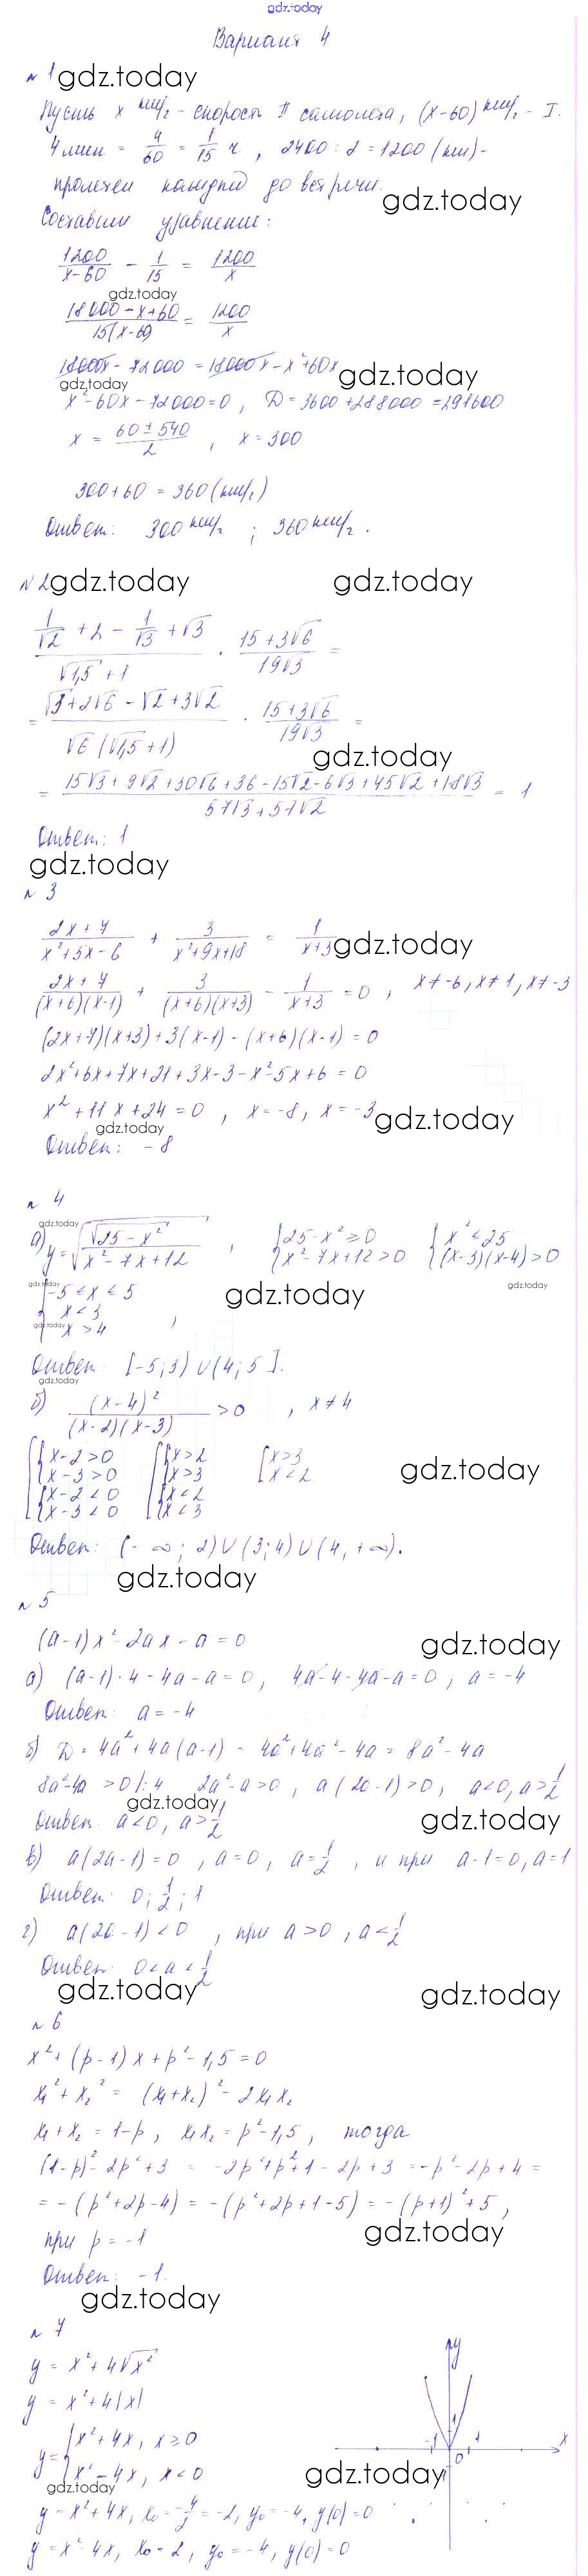 gdz.today
Вариант 4
№ 1 gdz.today
Пусть x км/ч - скорость II самолёта, (x-60) км/ч - I.
4 мин = 4/60 = 1/15 ч, 2400 : 2 = 1200 (км) -
пролетел каждый до встречи.
gdz.today
Составим уравнение:
1200/(x-60) - 1/15 = 1200/x
gdz.today
(18000 - x + 60)/(15(x-60)) = 1200/x
18000x - 72000 = 18000x - x² + 60x
gdz.today
gdz.today
x² - 60x - 72000 = 0, D = 3600 + 288000 = 291600
x = (60 ± 540)/2, x = 300
300 + 60 = 360 (км/ч)
Ответ: 300 км/ч; 360 км/ч.
№ 2 gdz.today gdz.today
(1/√2 + 2 - 1/√3 + √3)/(√1,5 + 1) · (15 + 3√6)/(19√3) =
= (√3 + 2√6 - √2 + 3√2)/(√6(√1,5 + 1)) · (15 + 3√6)/(19√3) =
gdz.today
= (15√3 + 9√2 + 30√6 + 36 - 15√2 - 6√3 + 45√2 + 18√3)/(57√3 + 57√2) = 1
Ответ: 1
gdz.today
№ 3
(2x + 7)/(x² + 5x - 6) + 3/(x² + 9x + 18) = 1/(x + 3)
gdz.today
(2x + 7)/((x+6)(x-1)) + 3/((x+6)(x+3)) - 1/(x+3) = 0, x ≠ -6, x ≠ 1, x ≠ -3
(2x+7)(x+3) + 3(x-1) - (x+6)(x-1) = 0
2x² + 6x + 7x + 21 + 3x - 3 - x² - 5x + 6 = 0
x² + 11x + 24 = 0, x = -8, x = -3
gdz.today
gdz.today
Ответ: -8
№ 4
gdz.today
а) y = √(√(25 - x²)/(x² - 7x + 12)), {25 - x² ≥ 0 {x² ≤ 25
{x² - 7x + 12 > 0 {(x-3)(x-4) > 0
gdz.today gdz.today gdz.today
{-5 ≤ x ≤ 5
x < 3
gdz.today
x > 4,
Ответ: [-5; 3) ∪ (4; 5].
gdz.today
б) (x-4)²/((x-2)(x-3)) > 0, x ≠ 4
[{x - 2 > 0 [{x > 2 [x > 3
{x - 3 > 0 {x > 3 x < 2
gdz.today
{x - 2 < 0 {x < 2
{x - 3 < 0 {x < 3
Ответ: (-∞; 2) ∪ (3; 4) ∪ (4, +∞).
gdz.today
№ 5
(a-1)x² - 2ax - a = 0
gdz.today
а) (a-1)·4 - 4a - a = 0, 4a - 4 - 4a - a = 0, a = -4
Ответ: a = -4
б) D = 4a² + 4a(a-1) = 4a² + 4a² - 4a = 8a² - 4a
8a² - 4a > 0 |:4 2a² - a > 0, a(2a-1) > 0, a < 0, a > 1/2
gdz.today
gdz.today
Ответ: a < 0, a > 1/2
в) a(2a-1) = 0, a = 0, a = 1/2, и при a - 1 = 0, a = 1
Ответ: 0; 1/2; 1
г) a(2a-1) < 0, при a > 0, a < 1/2
Ответ: 0 < a < 1/2
gdz.today gdz.today
№ 6
x² + (p-1)x + p² - 1,5 = 0
x₁² + x₂² = (x₁ + x₂)² - 2x₁x₂
x₁ + x₂ = 1 - p, x₁x₂ = p² - 1,5, тогда
(1-p)² - 2p² + 3 = -2p² + p² + 1 - 2p + 3 = -p² - 2p + 4 =
= -(p² + 2p - 4) = -(p² + 2p + 1 - 5) = -(p+1)² + 5,
при p = -1
gdz.today
Ответ: -1.
gdz.today
№ 7
y = x² + 4√x²
y = x² + 4|x|
y = {x² + 4x, x ≥ 0
{x² - 4x, x < 0
y
x
-1 0 1
1
gdz.today
gdz.today
y = x² + 4x, x₀ = -4/2 = -2, y₀ = -4, y(0) = 0
y = x² - 4x, x₀ = 2, y₀ = -4, y(0) = 0